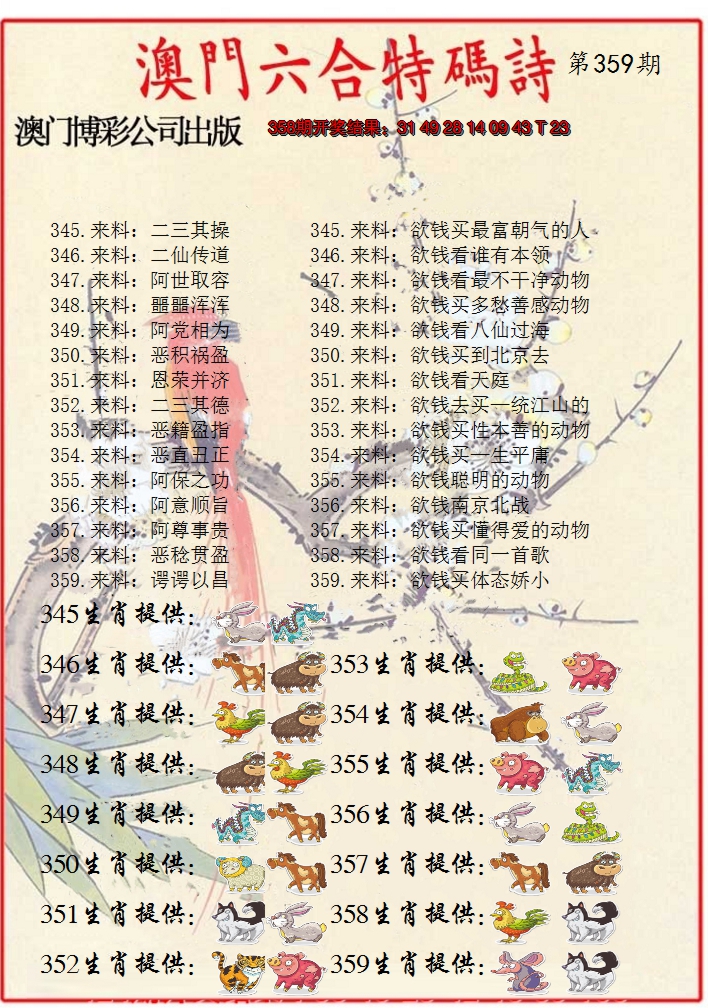 澳門六合特碼詩 第359期
澳门博彩公司出版 358期开奖结果：31 49 28 14 09 43 T 23
345.来料：二三其操 345.来料：欲钱买最富朝气的人
346.来料：二仙传道 346.来料：欲钱看谁有本领
347.来料：阿世取容 347.来料：欲钱看最不干净动物
348.来料：噩噩浑浑 348.来料：欲钱买多愁善感动物
349.来料：阿党相为 349.来料：欲钱看八仙过海
350.来料：恶积祸盈 350.来料：欲钱买到北京去
351.来料：恩荣并济 351.来料：欲钱看天庭
352.来料：二三其德 352.来料：欲钱去买一统江山的
353.来料：恶籍盈指 353.来料：欲钱买性本善的动物
354.来料：恶直丑正 354.来料：欲钱买一生平庸
355.来料：阿保之功 355.来料：欲钱聪明的动物
356.来料：阿意顺旨 356.来料：欲钱南京北战
357.来料：阿尊事贵 357.来料：欲钱买懂得爱的动物
358.来料：恶稔贯盈 358.来料：欲钱看同一首歌
359.来料：谔谔以昌 359.来料：欲钱买体态娇小
345生肖提供：
346生肖提供： 353生肖提供：
347生肖提供： 354生肖提供：
348生肖提供： 355生肖提供：
349生肖提供： 356生肖提供：
350生肖提供： 357生肖提供：
351生肖提供： 358生肖提供：
352生肖提供： 359生肖提供：